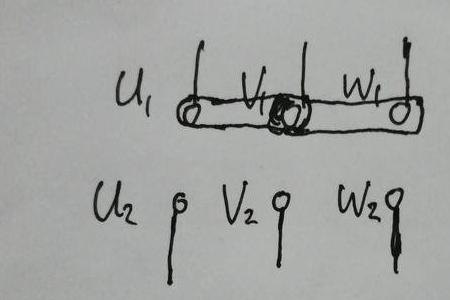 U1 V1 W1
U2 V2 W2